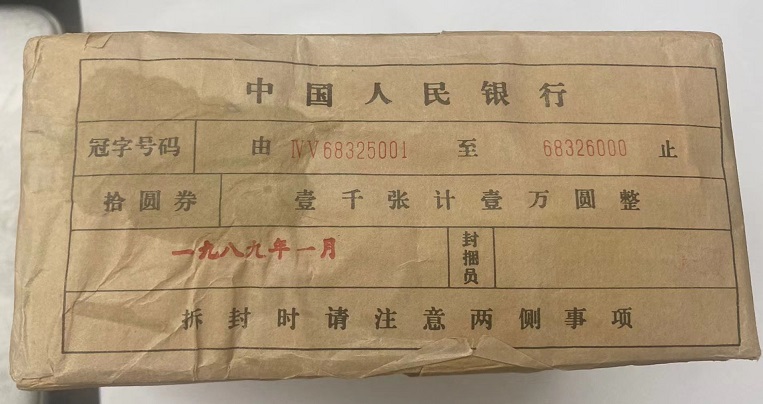 中国人民银行
冠字号码 由 ⅣV68325001 至 68326000 止
拾圆券 壹千张计壹万圆整
一九八九年一月 封捆员
拆封时请注意两侧事项